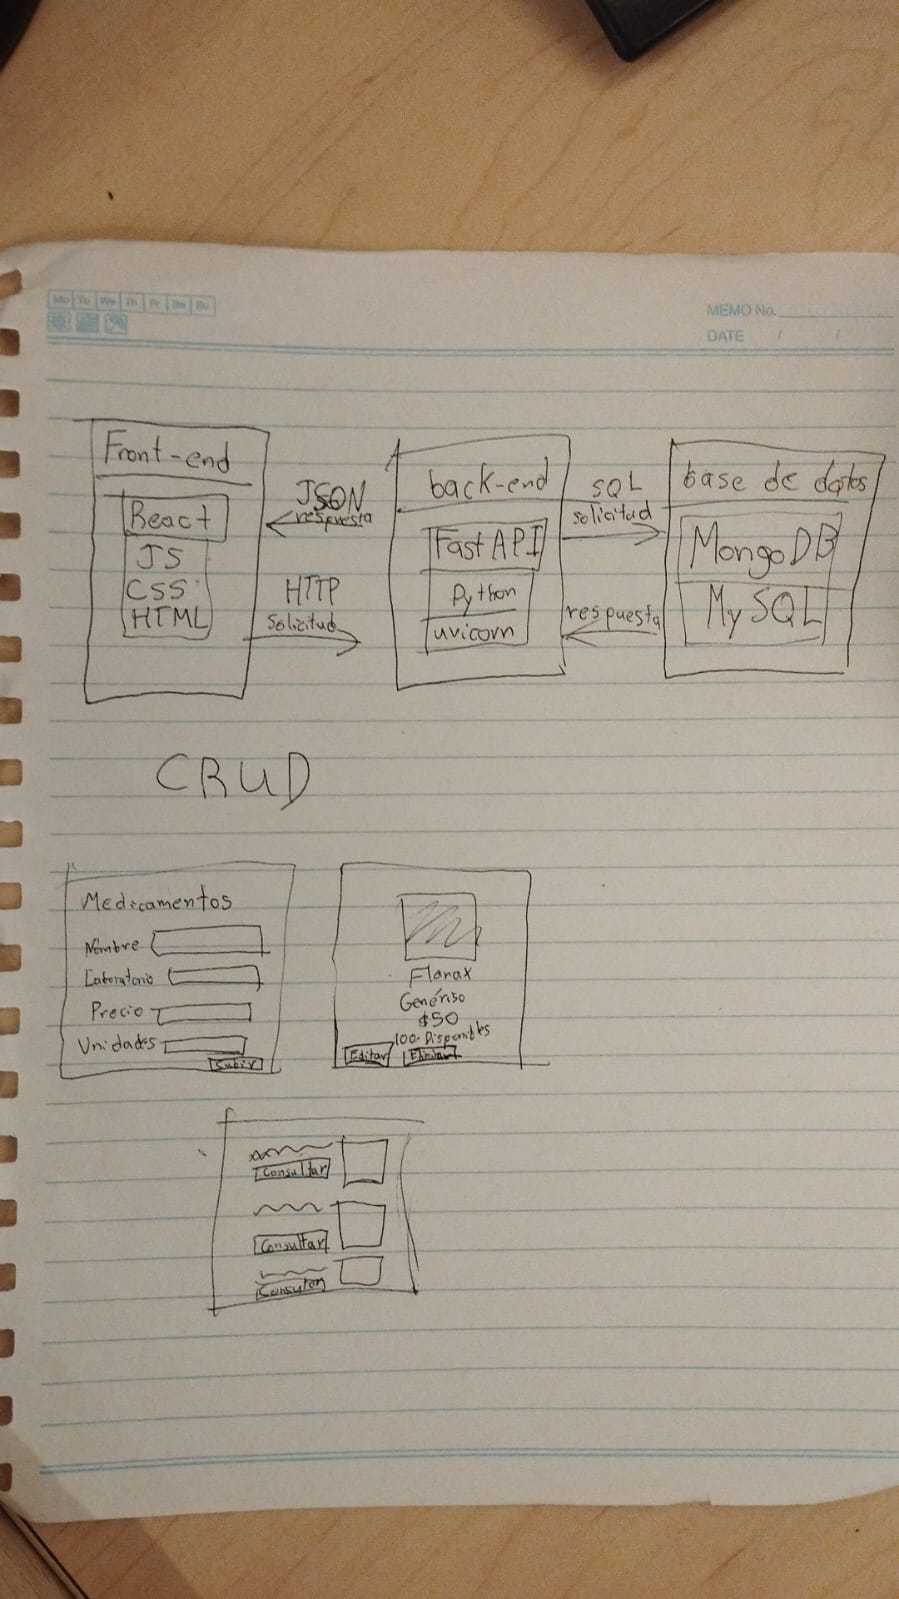 Mo Tu We Th Fr Sa Su
MEMO No.
DATE / /
Front-end
React
JS
CSS
HTML
JSON
respuesta
HTTP
solicitud
back-end
Fast API
Python
uvicorn
SQL
solicitud
respuesta
base de datos
MongoDB
MySQL
CRUD
Medicamentos
Nombre
Laboratorio
Precio
Unidades
Subir
Flanax
Genériso
$50
100 Disponibles
Editar
Eliminar
Consultar
Consultar
Consultar